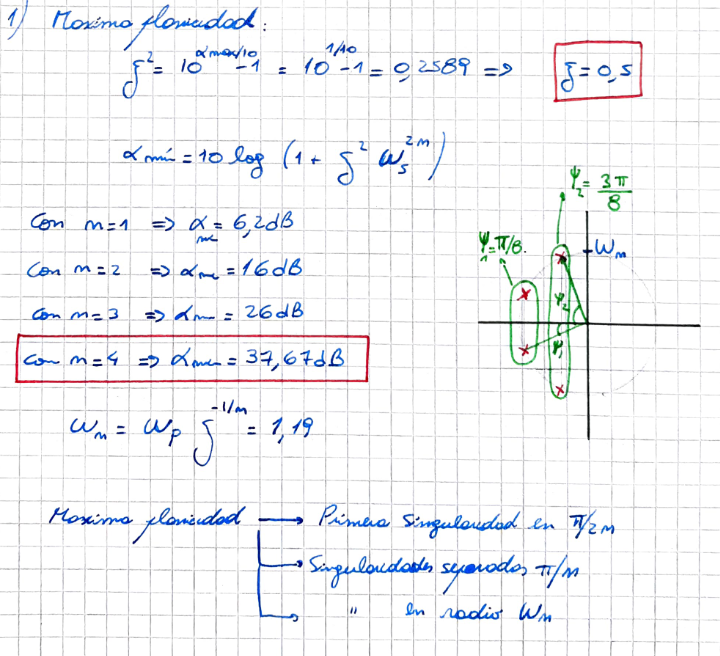 1) Maxima planicidad:
ξ² = 10^(αmax/10) -1 = 10^(1/10) -1 = 0,2589 => ξ = 0,5
αmín = 10 log (1 + ξ² ωs^(2n))
Con n=1 => αmin = 6,2dB
Con n=2 => αmin = 16dB
Con n=3 => αmin = 26dB
Con n=4 => αmin = 37,67dB
ψ2 = 3π/8
ψ1 = π/8.
ωn
ψ2
ψ1
ωn = ωp ξ^(-1/n) = 1,19
Maxima planicidad → Primera singularidad en π/2n
→ Singularidades separadas π/n
→ " en radio ωn